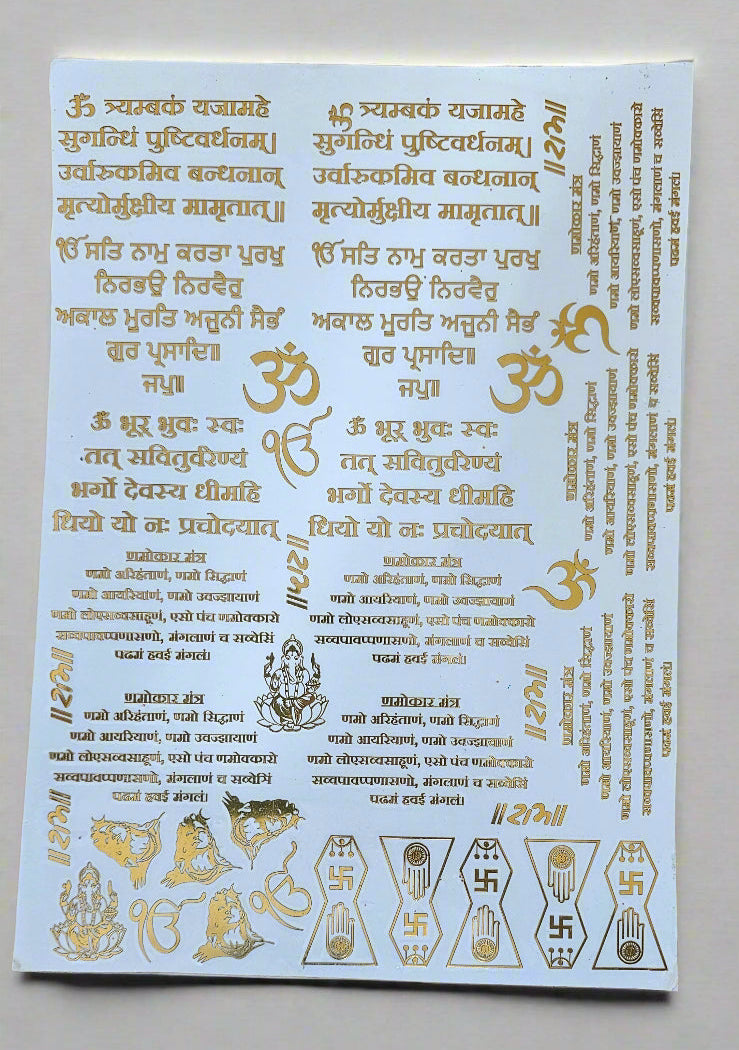 ॐ त्र्यम्बकं यजामहे
सुगन्धिं पुष्टिवर्धनम्।
उर्वारुकमिव बन्धनान्
मृत्योर्मुक्षीय मामृतात्॥
ੴ ਸਤਿ ਨਾਮੁ ਕਰਤਾ ਪੁਰਖੁ
ਨਿਰਭਉ ਨਿਰਵੈਰੁ
ਅਕਾਲ ਮੂਰਤਿ ਅਜੂਨੀ ਸੈਭੰ
ਗੁਰ ਪ੍ਰਸਾਦਿ॥
ਜਪੁ॥
ॐ
ॐ भूर् भुवः स्वः
तत् सवितुर्वरेण्यं
भर्गो देवस्य धीमहि
धियो यो नः प्रचोदयात्
ੴ
णमोकार मंत्र
णमो अरिहंताणं, णमो सिद्धाणं
णमो आयरियाणं, णमो उवज्झायाणं
णमो लोएसव्वसाहूणं, एसो पंच णमोक्कारो
सव्वपावप्पणासणो, मंगलाणं च सव्वेसिं
पढमं हवई मंगलं।
॥राम॥
॥राम॥
णमोकार मंत्र
णमो अरिहंताणं, णमो सिद्धाणं
णमो आयरियाणं, णमो उवज्झायाणं
णमो लोएसव्वसाहूणं, एसो पंच णमोक्कारो
सव्वपावप्पणासणो, मंगलाणं च सव्वेसिं
पढमं हवई मंगलं।
॥राम॥
ੴ
ੴ
ॐ त्र्यम्बकं यजामहे
सुगन्धिं पुष्टिवर्धनम्।
उर्वारुकमिव बन्धनान्
मृत्योर्मुक्षीय मामृतात्॥
ੴ ਸਤਿ ਨਾਮੁ ਕਰਤਾ ਪੁਰਖੁ
ਨਿਰਭਉ ਨਿਰਵੈਰੁ
ਅਕਾਲ ਮੂਰਤਿ ਅਜੂਨੀ ਸੈਭੰ
ਗੁਰ ਪ੍ਰਸਾਦਿ॥
ਜਪੁ॥
ॐ
ॐ भूर् भुवः स्वः
तत् सवितुर्वरेण्यं
भर्गो देवस्य धीमहि
धियो यो नः प्रचोदयात्
णमोकार मंत्र
णमो अरिहंताणं, णमो सिद्धाणं
णमो आयरियाणं, णमो उवज्झायाणं
णमो लोएसव्वसाहूणं, एसो पंच णमोक्कारो
सव्वपावप्पणासणो, मंगलाणं च सव्वेसिं
पढमं हवई मंगलं।
णमोकार मंत्र
णमो अरिहंताणं, णमो सिद्धाणं
णमो आयरियाणं, णमो उवज्झायाणं
णमो लोएसव्वसाहूणं, एसो पंच णमोक्कारो
सव्वपावप्पणासणो, मंगलाणं च सव्वेसिं
पढमं हवई मंगलं।
॥राम॥
॥राम॥
णमोकार मंत्र
णमो अरिहंताणं, णमो सिद्धाणं
णमो आयरियाणं, णमो उवज्झायाणं
णमो लोएसव्वसाहूणं, एसो पंच णमोक्कारो
सव्वपावप्पणासणो, मंगलाणं च सव्वेसिं
पढमं हवई मंगलं।
ॐ
णमोकार मंत्र
णमो अरिहंताणं, णमो सिद्धाणं
णमो आयरियाणं, णमो उवज्झायाणं
णमो लोएसव्वसाहूणं, एसो पंच णमोक्कारो
सव्वपावप्पणासणो, मंगलाणं च सव्वेसिं
पढमं हवई मंगलं।
ॐ
॥राम॥
णमोकार मंत्र
णमो अरिहंताणं, णमो सिद्धाणं
णमो आयरियाणं, णमो उवज्झायाणं
णमो लोएसव्वसाहूणं, एसो पंच णमोक्कारो
सव्वपावप्पणासणो, मंगलाणं च सव्वेसिं
पढमं हवई मंगलं।